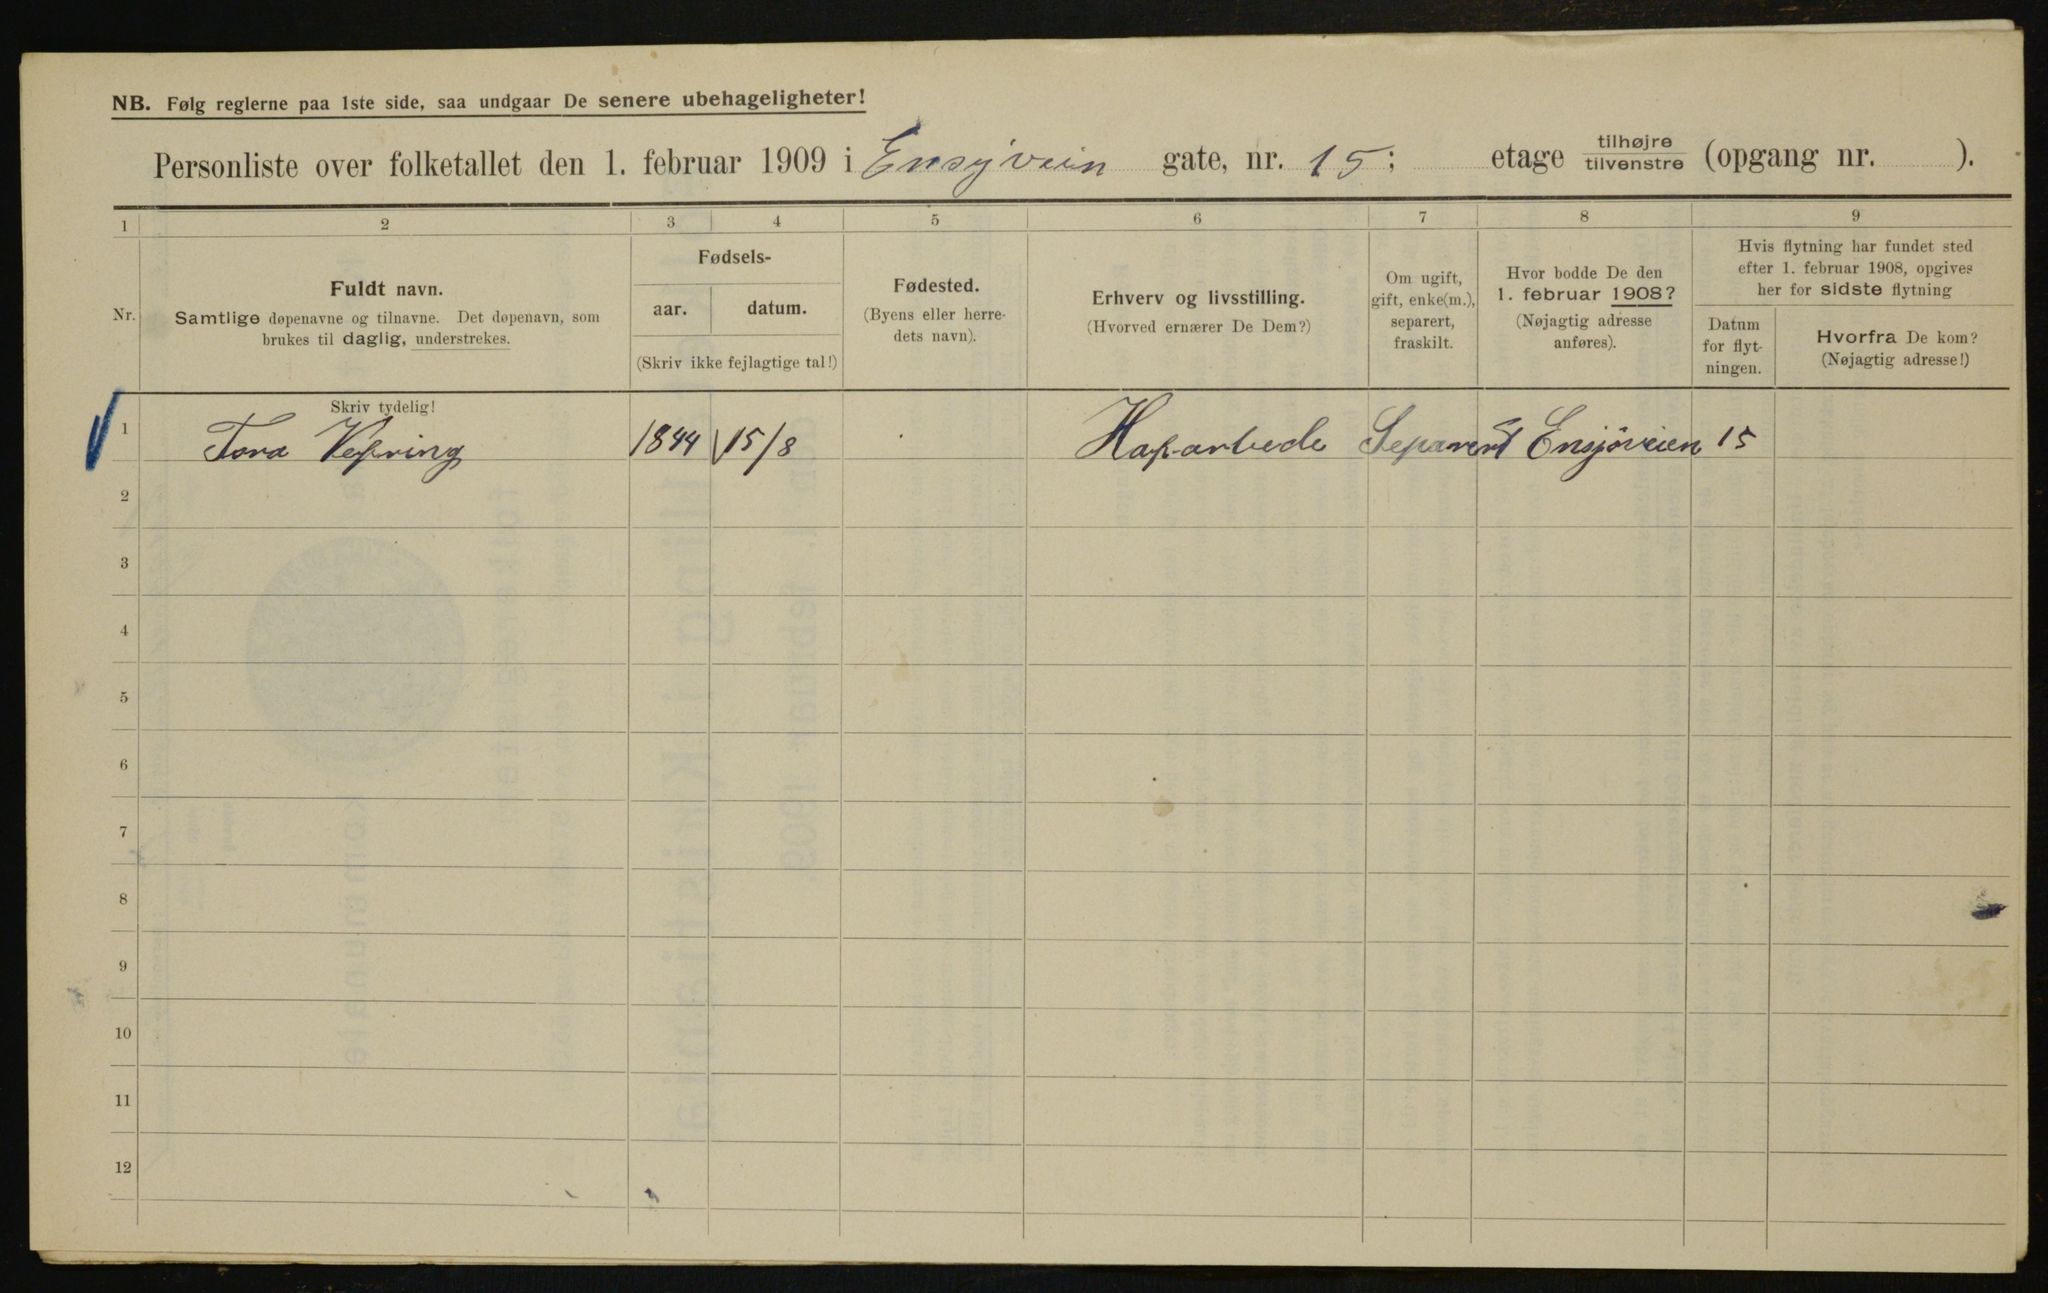 NB. Følg reglerne paa 1ste side, saa undgaar De senere ubehageligheter!
Personliste over folketallet den 1. februar 1909 i Ensjvein gate, nr. 15; etage tilhøjre tilvenstre (opgang nr. ).
1 2 3 4 5 6 7 8 9
Nr.
Fuldt navn.
Samtlige døpenavne og tilnavne. Det døpenavn, som
brukes til daglig, understrekes.
Fødsels-
aar. datum.
(Skriv ikke fejlagtige tal!)
Fødested.
(Byens eller herre-
dets navn).
Erhverv og livsstilling.
(Hvorved ernærer De Dem?)
Om ugift,
gift, enke(m.),
separert,
fraskilt.
Hvor bodde De den
1. februar 1908?
(Nøjagtig adresse
anføres).
Hvis flytning har fundet sted
efter 1. februar 1908, opgives
her for sidste flytning
Datum
for flyt-
ningen.
Hvorfra De kom?
(Nøjagtig adresse!)
Skriv tydelig!
1 Tora 1844 15/8 Separert Ensjöveien 15
2
3
4
5
6
7
8
9
10
11
12